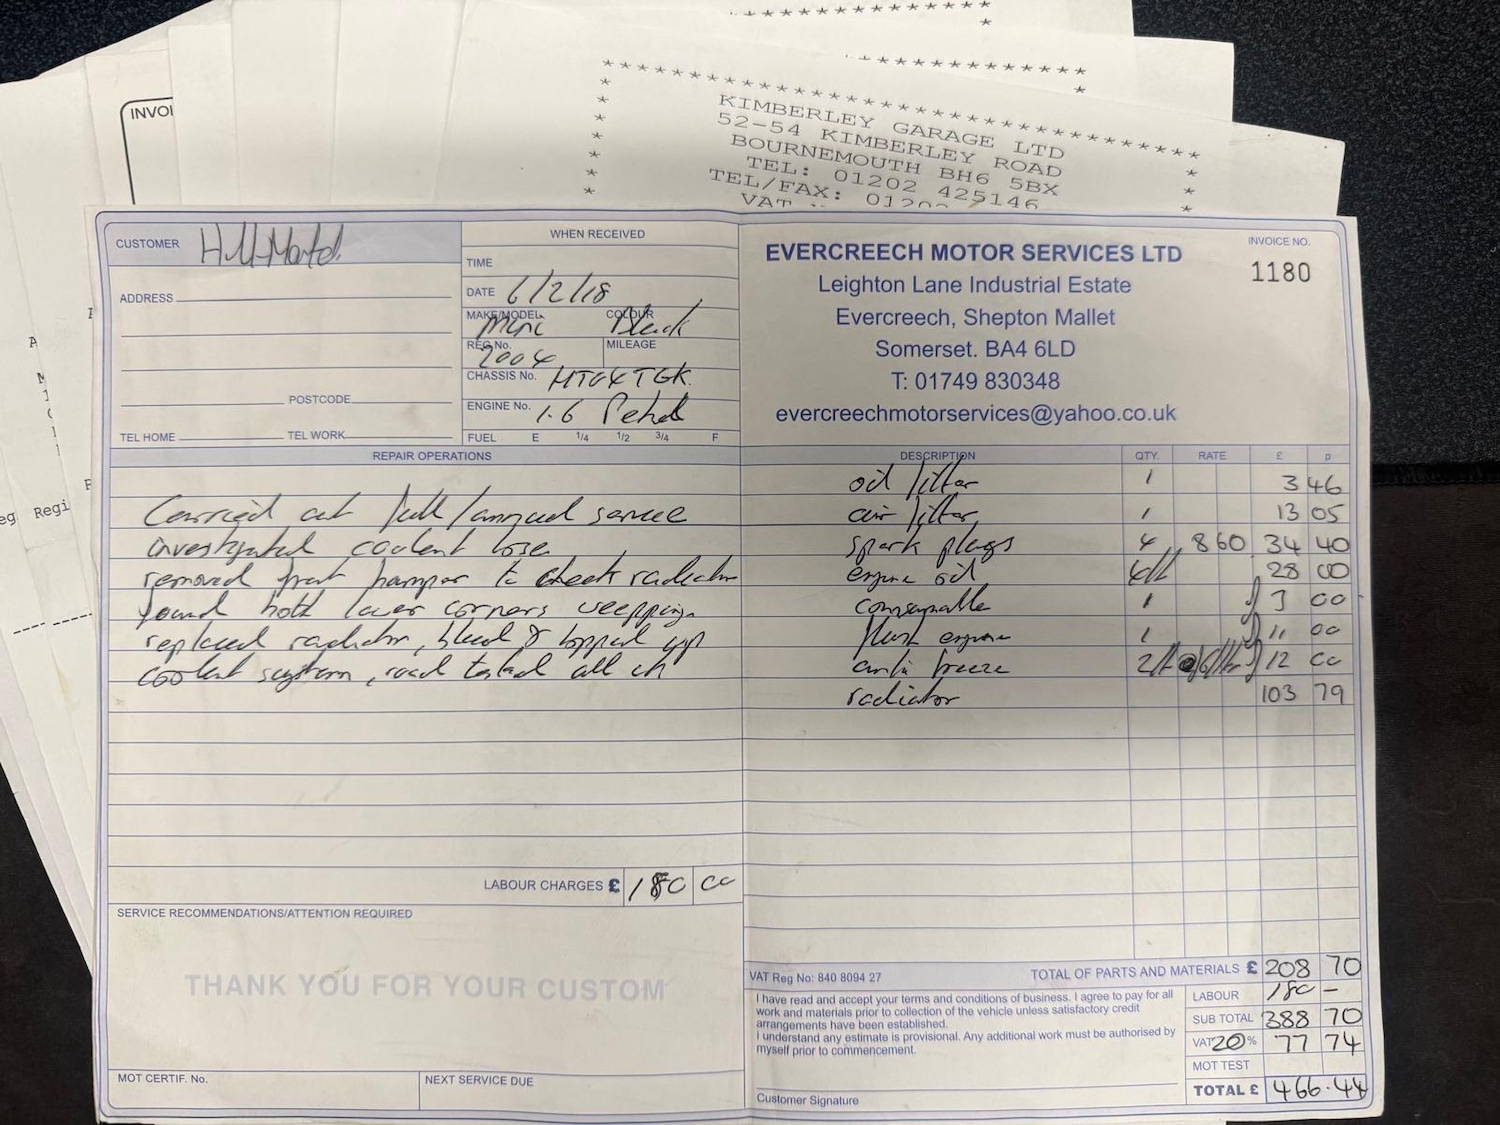 INVOI
KIMBERLEY GARAGE LTD
52-54 KIMBERLEY ROAD
BOURNEMOUTH BH6 5BX
TEL: 01202 425146
TEL/FAX: 01202
VAT
eg Regi
CUSTOMER
ADDRESS
POSTCODE
TEL HOME TEL WORK
WHEN RECEIVED
TIME
DATE 6/2/18
MAKE/MODEL Mini COLOUR Black
REG No. 2004 MILEAGE
CHASSIS No.
ENGINE No. 1.6 Petrol
FUEL E 1/4 1/2 3/4 F
EVERCREECH MOTOR SERVICES LTD
Leighton Lane Industrial Estate
Evercreech, Shepton Mallet
Somerset. BA4 6LD
T: 01749 830348
evercreechmotorservices@yahoo.co.uk
INVOICE NO.
1180
REPAIR OPERATIONS
Carried out full/annual service
investigated coolent lose
removed front bumper to check radiator
found both lower corners weepping.
replaced radiator, bleed & topped up
coolent system, road tested all ok
LABOUR CHARGES £ 180 00
SERVICE RECOMMENDATIONS/ATTENTION REQUIRED
THANK YOU FOR YOUR CUSTOM
MOT CERTIF. No. NEXT SERVICE DUE
DESCRIPTION QTY. RATE £ p
oil filter 1 3 46
air filter 1 13 05
spark plugs 4 8 60 34 40
engine oil 4lt 28 00
consumable 1 3 00
flush engine 1 11 00
anti freeze 2lt 12 00
radiator 103 79
VAT Reg No: 840 8094 27 TOTAL OF PARTS AND MATERIALS £ 208 70
I have read and accept your terms and conditions of business. I agree to pay for all
work and materials prior to collection of the vehicle unless satisfactory credit
arrangements have been established.
I understand any estimate is provisional. Any additional work must be authorised by
myself prior to commencement.
Customer Signature
LABOUR 180 -
SUB TOTAL 388 70
VAT 20 % 77 74
MOT TEST
TOTAL £ 466.44